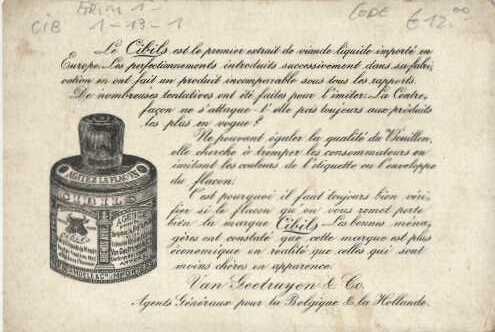 GRIM 1-
CODE € 12.00
CiB 1-13-1
Le Cibils est le premier extrait de viande liquide importé en
Europe. Les perfectionnements introduits successivement dans sa fabri-
cation en ont fait un produit incomparable sous tous les rapports.
De nombreuses tentatives ont été faites pour l'imiter. La Contre,
façon ne s'attaque-t'elle pas toujours aux produits
les plus en vogue?
Ne pouvant égaler la qualité du Bouillon,
elle cherche à tromper les consommateurs en
imitant les couleurs de l'étiquette ou l'enveloppe
du flacon.
C'est pourquoi il faut toujours bien véri,
fier si le flacon qu'on vous remet porte
bien la marque Cibils. Les bonnes ména,
gères ont constaté que cette marque est plus
économique en réalité que celles qui sont
moins chères en apparence.
Van Geetruyen & Co.
Agents Généraux pour la Belgique & la Hollande.
AGITEZ LE FLACON
CIBILS